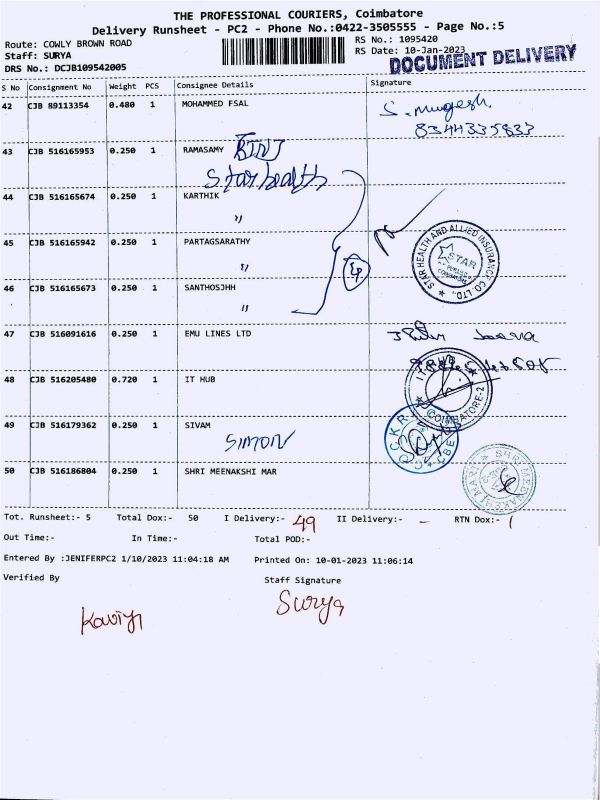 THE PROFESSIONAL COURIERS, Coimbatore
Delivery Runsheet - PC2 - Phone No.:0422-3505555 - Page No.:5
Route: COWLY BROWN ROAD
RS No.: 1095420
Staff: SURYA
RS Date: 10-Jan-2023
DRS No.: DCJB109542005
DOCUMENT DELIVERY
S No Consignment No Weight PCS Consignee Details Signature
42 CJB 89113354 0.480 1 MOHAMMED FSAL
S. Mugesh.
8344335833
43 CJB 516165953 0.250 1 RAMASAMY
Star health
44 CJB 516165674 0.250 1 KARTHIK
"
45 CJB 516165942 0.250 1 PARTAGSARATHY
"
STAR HEALTH AND ALLIED INSURANCE CO. LTD.,
STAR
46 CJB 516165673 0.250 1 SANTHOSJHH
"
47 CJB 516091616 0.250 1 EMU LINES LTD
48 CJB 516205480 0.720 1 IT HUB
COIMBATORE-2
49 CJB 516179362 0.250 1 SIVAM
SIMON
50 CJB 516186804 0.250 1 SHRI MEENAKSHI MAR
Tot. Runsheet:- 5 Total Dox:- 50 I Delivery:- 49 II Delivery:- - RTN Dox:- 1
Out Time:- In Time:- Total POD:-
Entered By :JENIFERPC2 1/10/2023 11:04:18 AM Printed On: 10-01-2023 11:06:14
Verified By Staff Signature
Surya